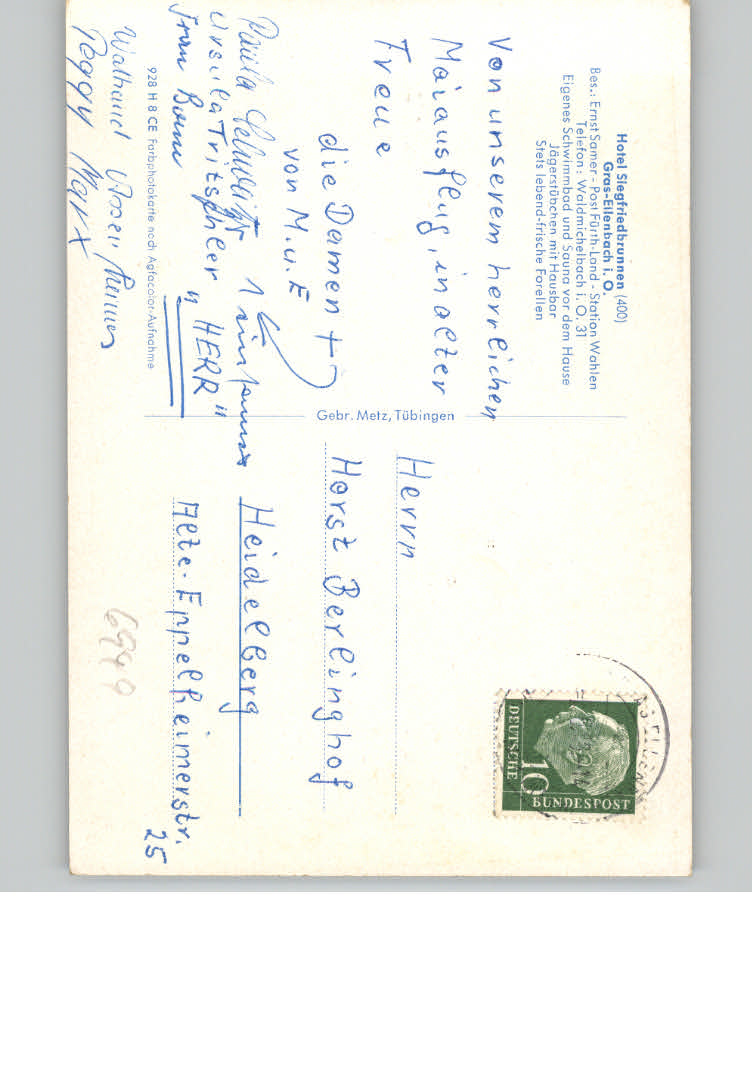 Hotel Siegfriedbrunnen (400)
Gras-Ellenbach i. O.
Bes.: Ernst Samer - Post Fürth-Land - Station Wahlen
Telefon: Waldmichelbach i. O. 31
Eigenes Schwimmbad und Sauna vor dem Hause
Jägerstübchen mit Hausbar
Stets lebend-frische Forellen
Von unserem herrlichen
Maiausflug, in alter
Treue
die Damen +
von M.u.E
Paula
Ursula Tritschler "HERR"
Frau
928 H 8 CE Farbphotokarte nach Agfacolor-Aufnahme
Peggy Marx
Gebr. Metz, Tübingen
Herrn
Horst Berlinghof
Heidelberg
Alte-Eppelheimerstr.
25
6999
DEUTSCHE
10
BUNDESPOST